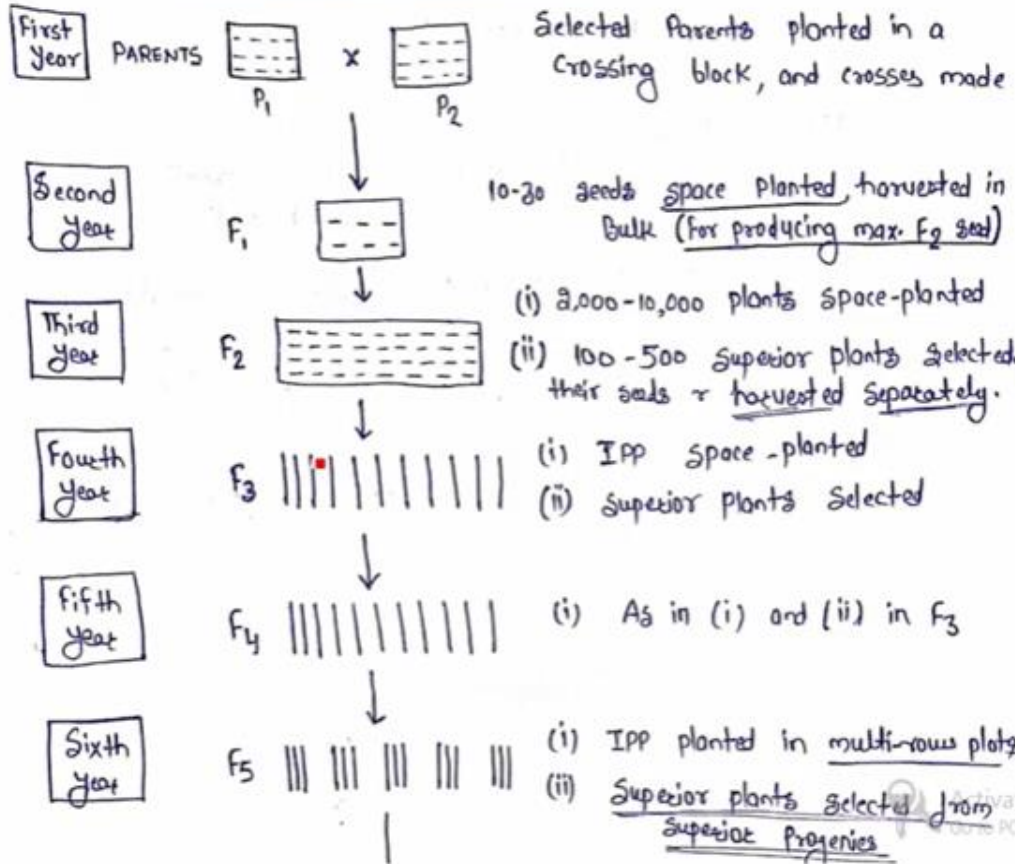 First
Year
PARENTS
P1
x
P2
Selected Parents planted in a
Crossing block, and crosses made
Second
Year
F1
10-30 seeds space planted, harvested in
Bulk (for producing max. F2 seed)
Third
Year
F2
(i) 2,000-10,000 plants space-planted
(ii) 100-500 superior plants selected.
their seeds r harvested separately.
Fourth
Year
F3
(i) IPP space-planted
(ii) superior plants selected
Fifth
Year
F4
(i) As in (i) and (ii) in F3
Sixth
Year
F5
(i) IPP planted in multi-row plots
(ii) Superior plants selected from
superior Progenies
Activa
Go to PC